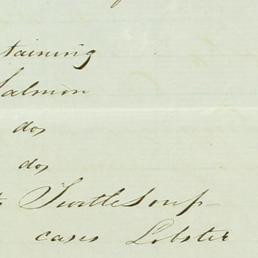 taining
Salmon
do
do
Turtle Soup
cases Lobster